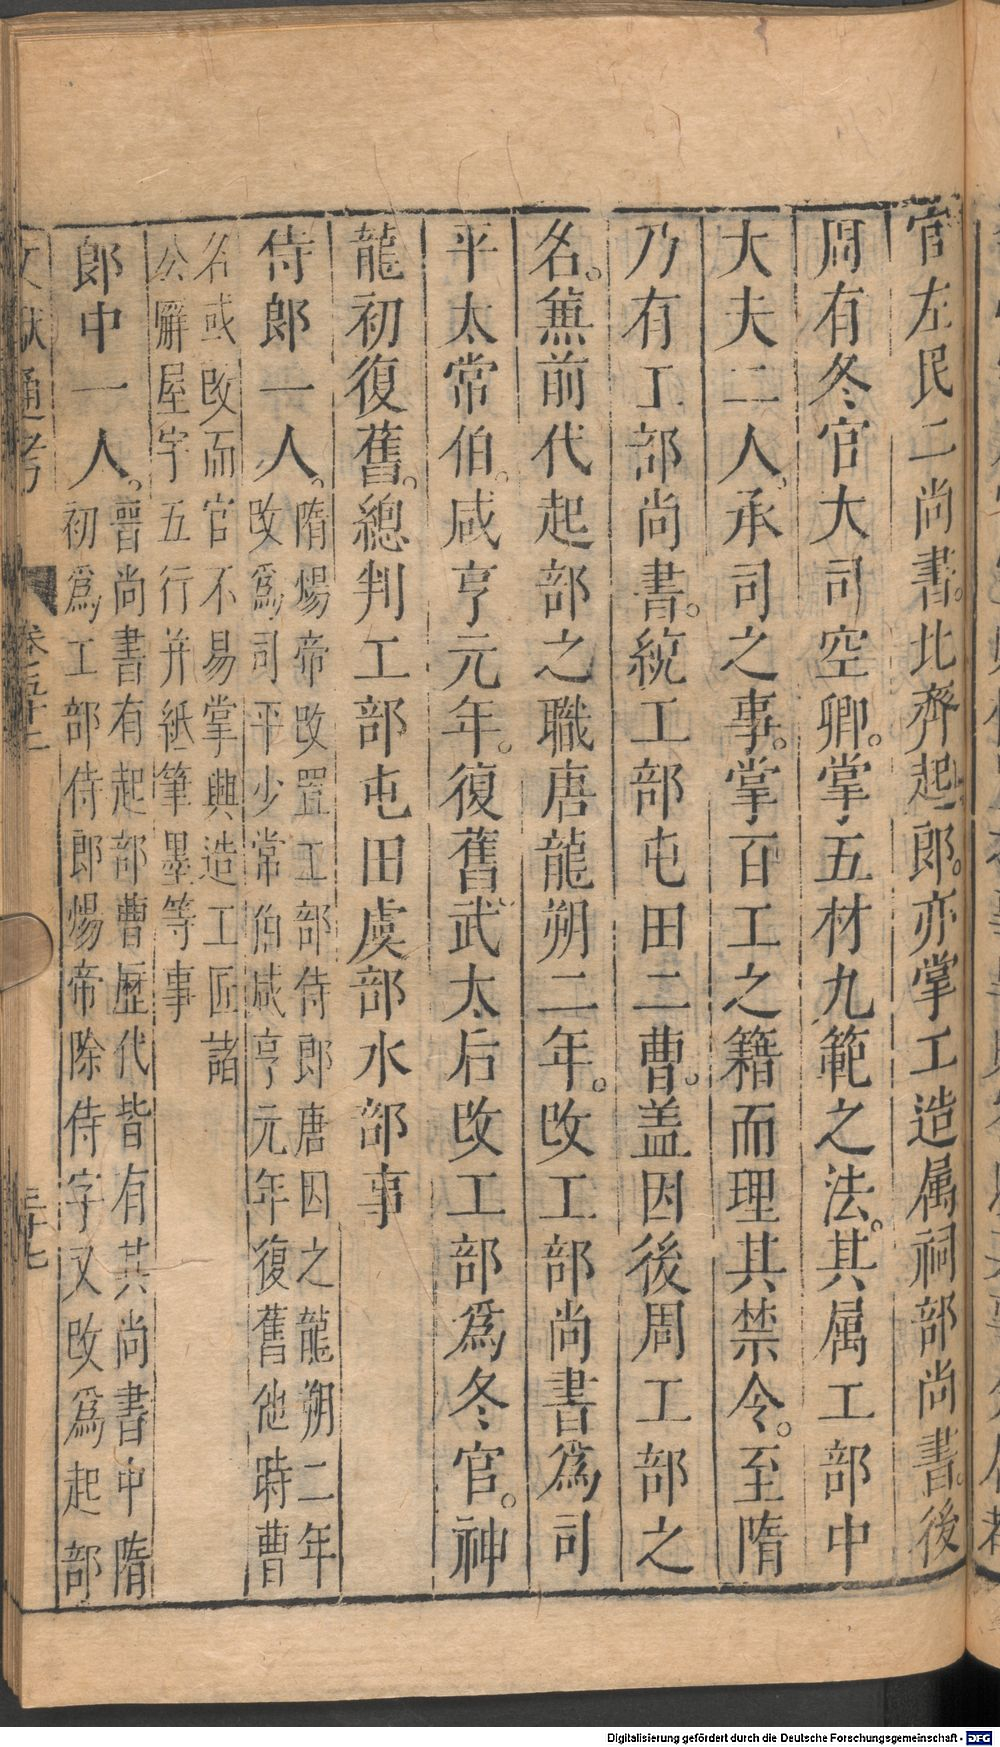 官左民二尚書。北齊起郎。亦掌工造属祠部尚書。後
周有冬官大司空卿。掌五材九範之法。其属工部中
大夫二人。承司之事。掌百工之籍而理其禁令。至隋
乃有工部尚書。統工部屯田二曹。盖因後周工部之
名。蕪前代起部之職唐龍朔二年。改工部尚書爲司
平太常伯。咸亨元年。復舊武太后改工部爲冬官。神
龍初復舊。總判工部屯田虞部水部事
侍郎一人。
隋煬帝改置工部侍郎唐因之龍朔二年
改爲司平少常伯咸亨元年復舊他時曹
名或改而官不易掌興造工匠諸
公廨屋宇五行并紙筆墨等事
郎中一人。
晋尚書有起部曹歷代皆有其尚書中隋
初爲工部侍郎煬帝除侍字又改爲起部
文獻通考 卷五十二 三十七
Digitalisierung gefördert durch die Deutsche Forschungsgemeinschaft - DFG